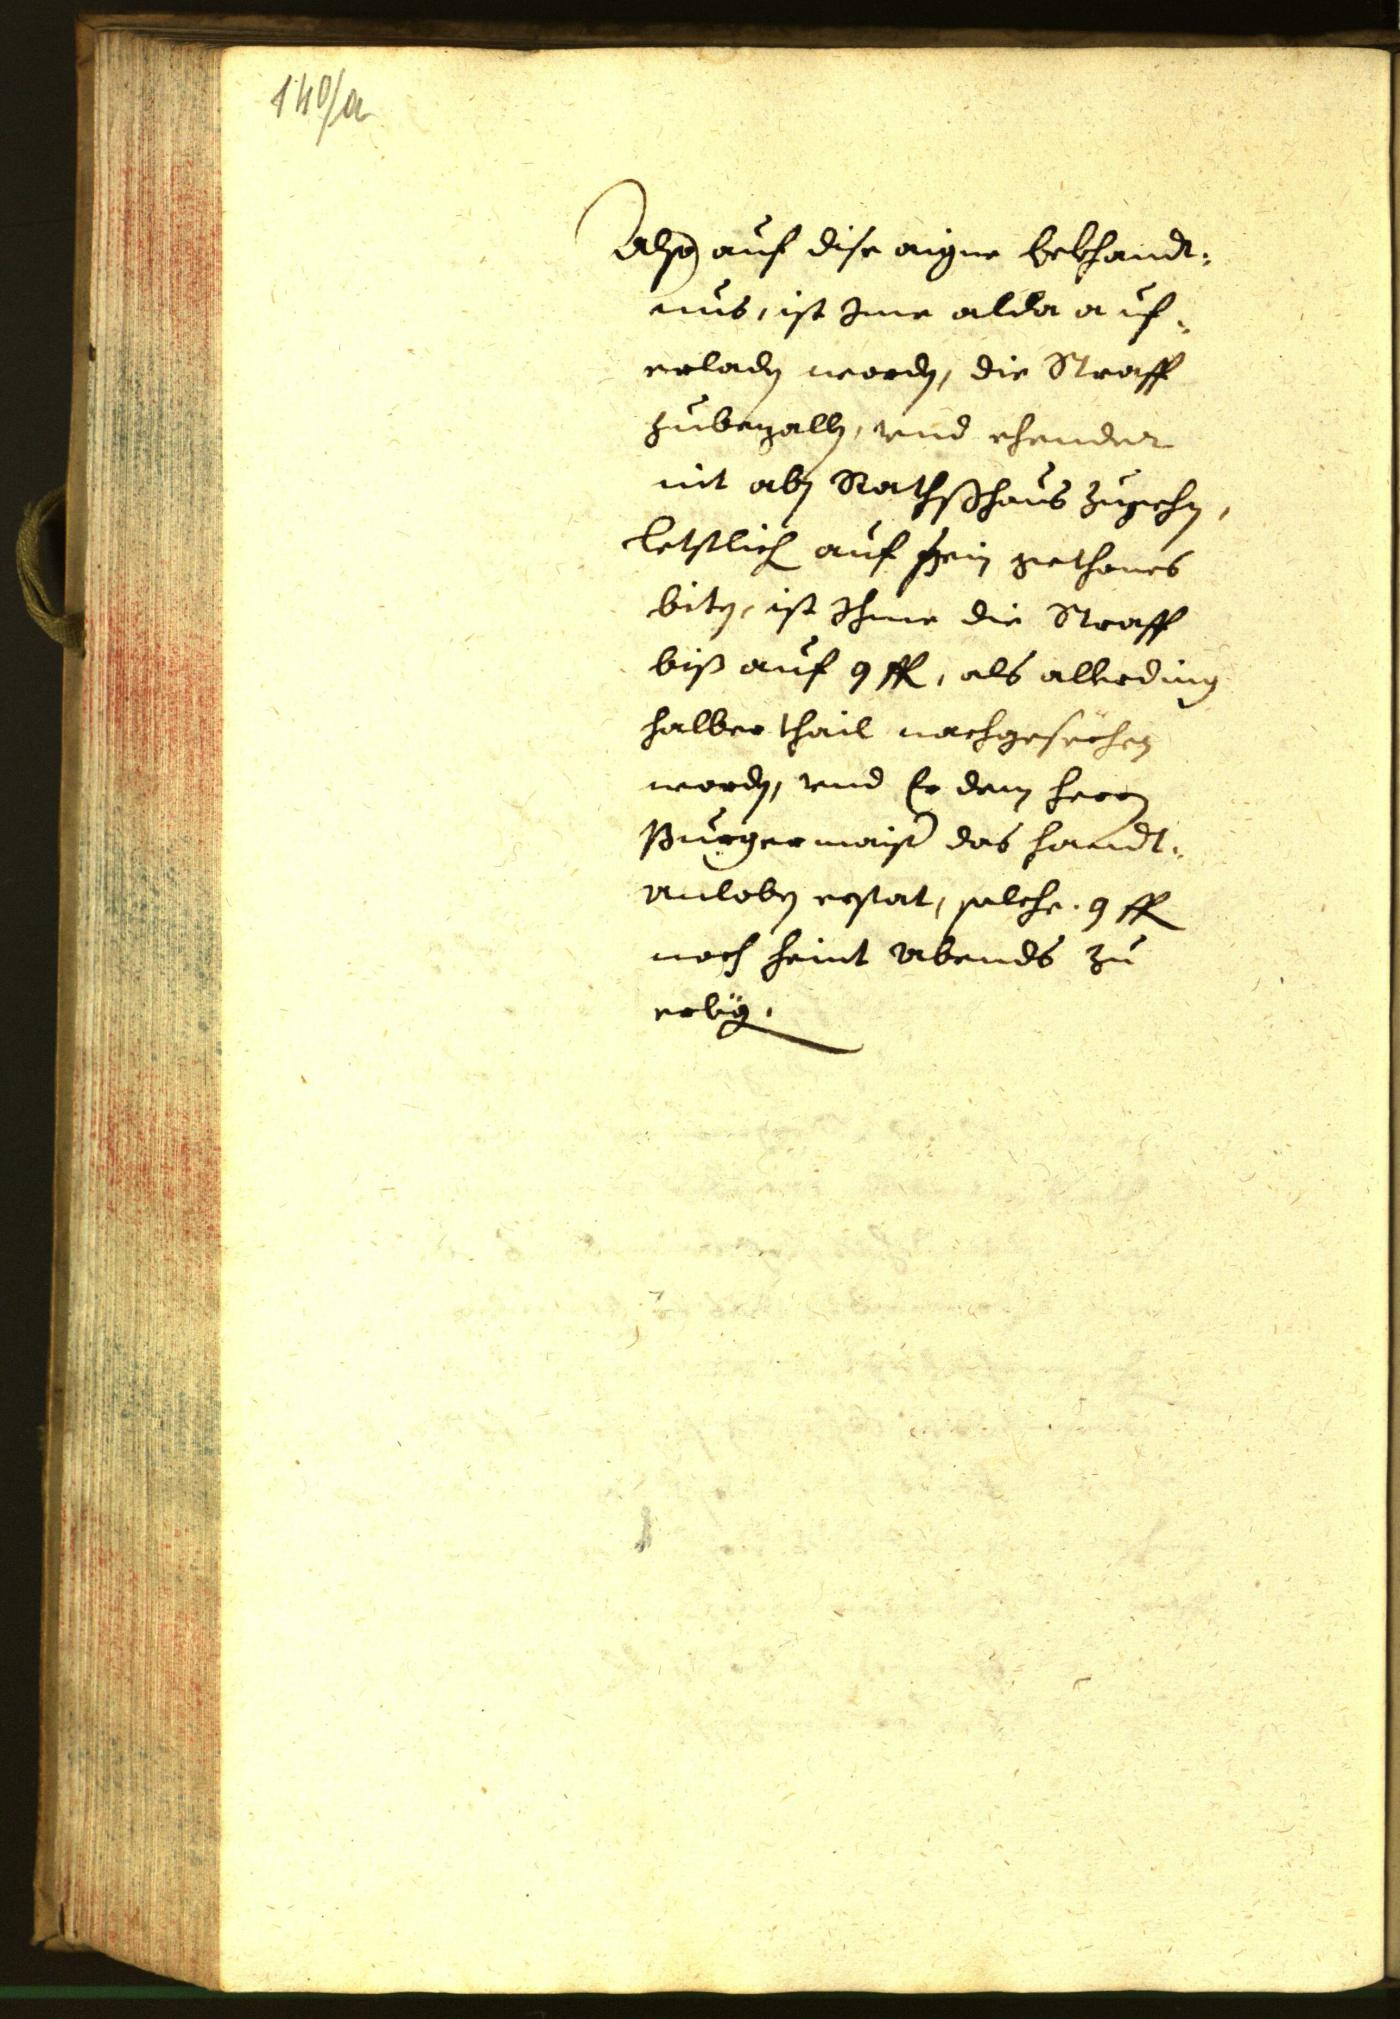 140/a
Also auf dise aigne bekhandt:
nus, ist Ime alda auf:
erladn wordn, die Straff
zubezalln, vnd ehender
nit abn Rathßhaus zugehn,
letstlich auf sein gethones
bitn, ist Ihme die Straff
biß auf 9 fl, als allerding
halber thail nachgesechen
wordn, vnd Er dem herrn
Burgermaister das handt:
anlobn erstat, solche 9 fl
noch heint Abends zu
erlegn.